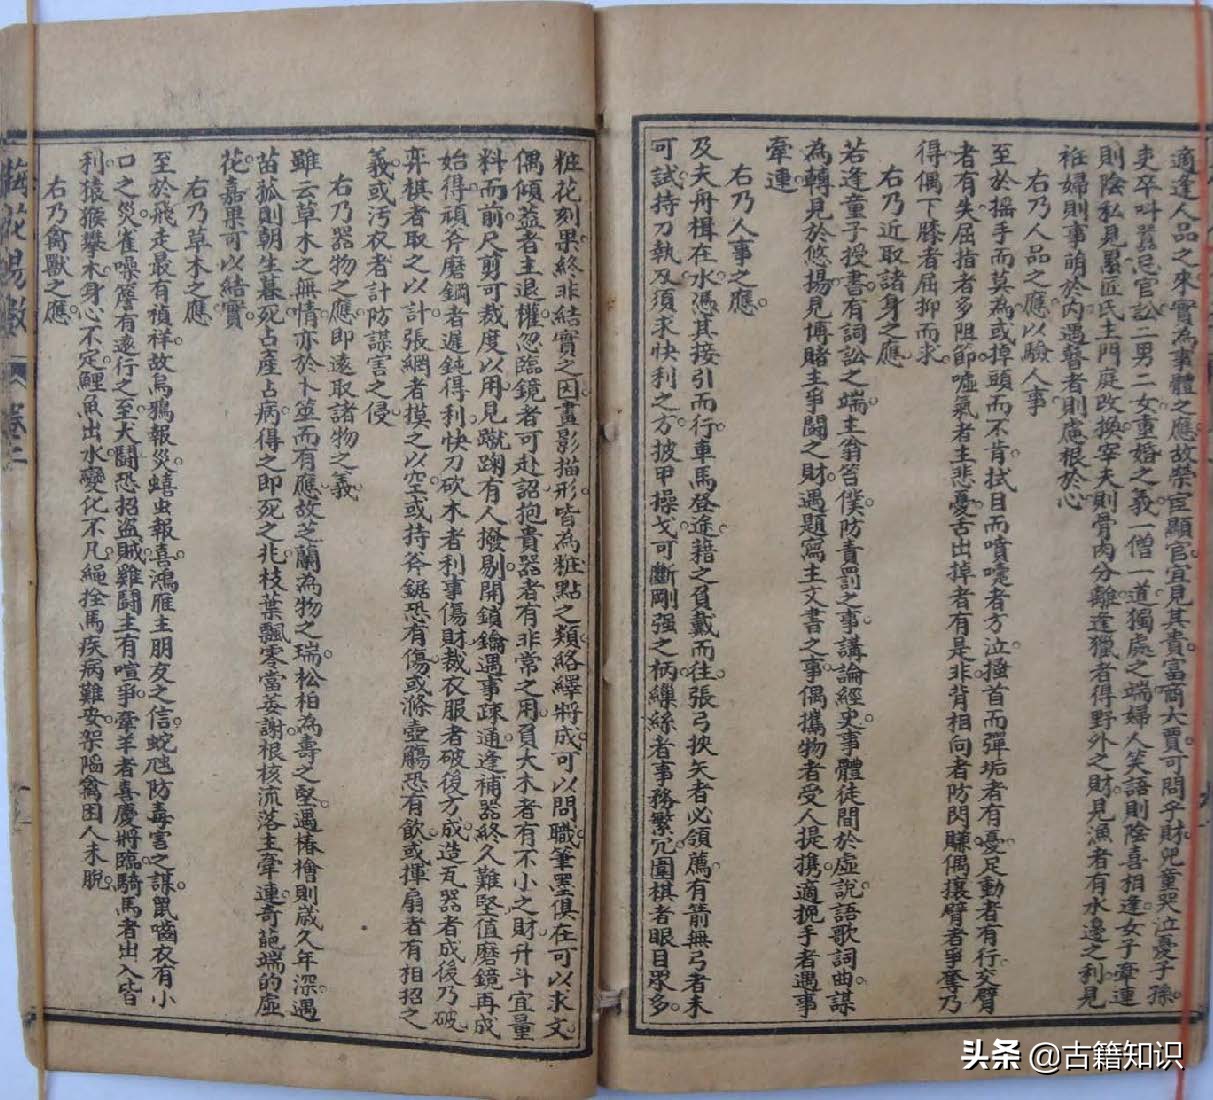 適逢人品之來實為事體之應故榮宦顯官宜見其貴富商大賈可問乎財兒童哭泣憂子孫
吏卒叫囂忌官訟二男二女重婚之義一僧一道獨處之端婦人笑語則陰喜相逢女子牽連
則陰私見累匠氏主門庭改換宰夫則骨肉分離逢獵者得野外之財見漁者有水邊之利見
姙婦則事萌於內遇瞽者則慮根於心
右乃人品之應以驗人事
至於搖手而莫為或掉頭而不肯拭目而噴嚏者方泣搔首而彈垢者有憂足動者有行交臂
者有失屈指者多阻節噓氣者主悲憂舌出掉者有是非背相向者防閃賺偶攘臂者爭奪乃
得偶下膝者屈抑而求
右乃近取諸身之應
若逢童子授書有詞訟之端主翁笞僕防責罰之事講論經史事體徒間於虛說語歌詞曲謀
為轉見於悠揚見博賭主爭鬪之財遇題寫主文書之事偶攜物者受人提携適挽手者遇事
牽連
右乃人事之應
及夫舟楫在水憑其接引而行車馬登途藉之負戴而往張弓挾矢者必領薦有箭無弓者未
可試持刀執及須求快利之方披甲操戈可斷剛强之柄繅絲者事務繁冗圍棋者眼目眾多
粧花刻果終非結實之因畫影描形皆為粧點之類絡繹將成可以問職筆墨俱在可以求文
偶傾盖者主退權忽臨鏡者可赴詔抱貴器者有非常之用負大木者有不小之財升斗宜量
料而前尺剪可裁度以用見蹴踘有人撥剔開鎖鑰遇事疎通逢補器終久難堅值磨鏡再成
始得頑斧磨鋼者遲鈍得利快刀砍木者利事傷財裁衣服者破後方成造瓦器者成後乃破
弈棋者取之以計張網者摸之以空或持斧鋸恐有傷或滌壺觴恐有飲或揮扇者有相招之
義或污衣者計防謀害之侵
右乃器物之應即遠取諸物之義
雖云草木之無情亦於卜筮而有應故芝蘭為物之瑞松柏為壽之堅遇椿檜則歲久年深遇
苗菰則朝生暮死占產占病得之即死之兆枝葉飄零當萎謝根核流落主牽連奇葩端的虛
花嘉果可以結實
右乃草木之應
至於飛走最有禎祥故烏鴉報災蟢虫報喜鴻雁主朋友之信蛇虺防毒害之謀鼠嚙衣有小
口之災雀噪簷有遠行之至犬鬪恐招盜賊雞鬪主有喧爭牽羊者喜慶將臨騎馬者出入皆
利猿猴攀木身心不定鯉魚出水變化不凡繩拴馬疾病難安架陷禽囚人未脫
右乃禽獸之應
梅花易數 卷二
头条 @古籍知识